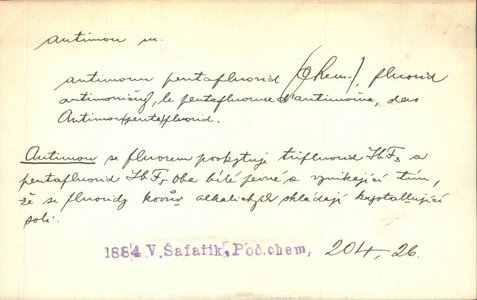 antimon m.
antimonu pentafluorid (Chem.), fluorid
antimoničný, le pentafluorure d'antimoine, das
Antimon(penta)fluorid.
Antimon se fluorem poskytuje trifluorid SbF3 a
pentafluorid SbF5 Oba bílé pevné a vynikající tím,
že se fluoridy kovův alkalických skládají krystallující
soli.
1884 V. Šafařík, Poč.chem, 204, 26.